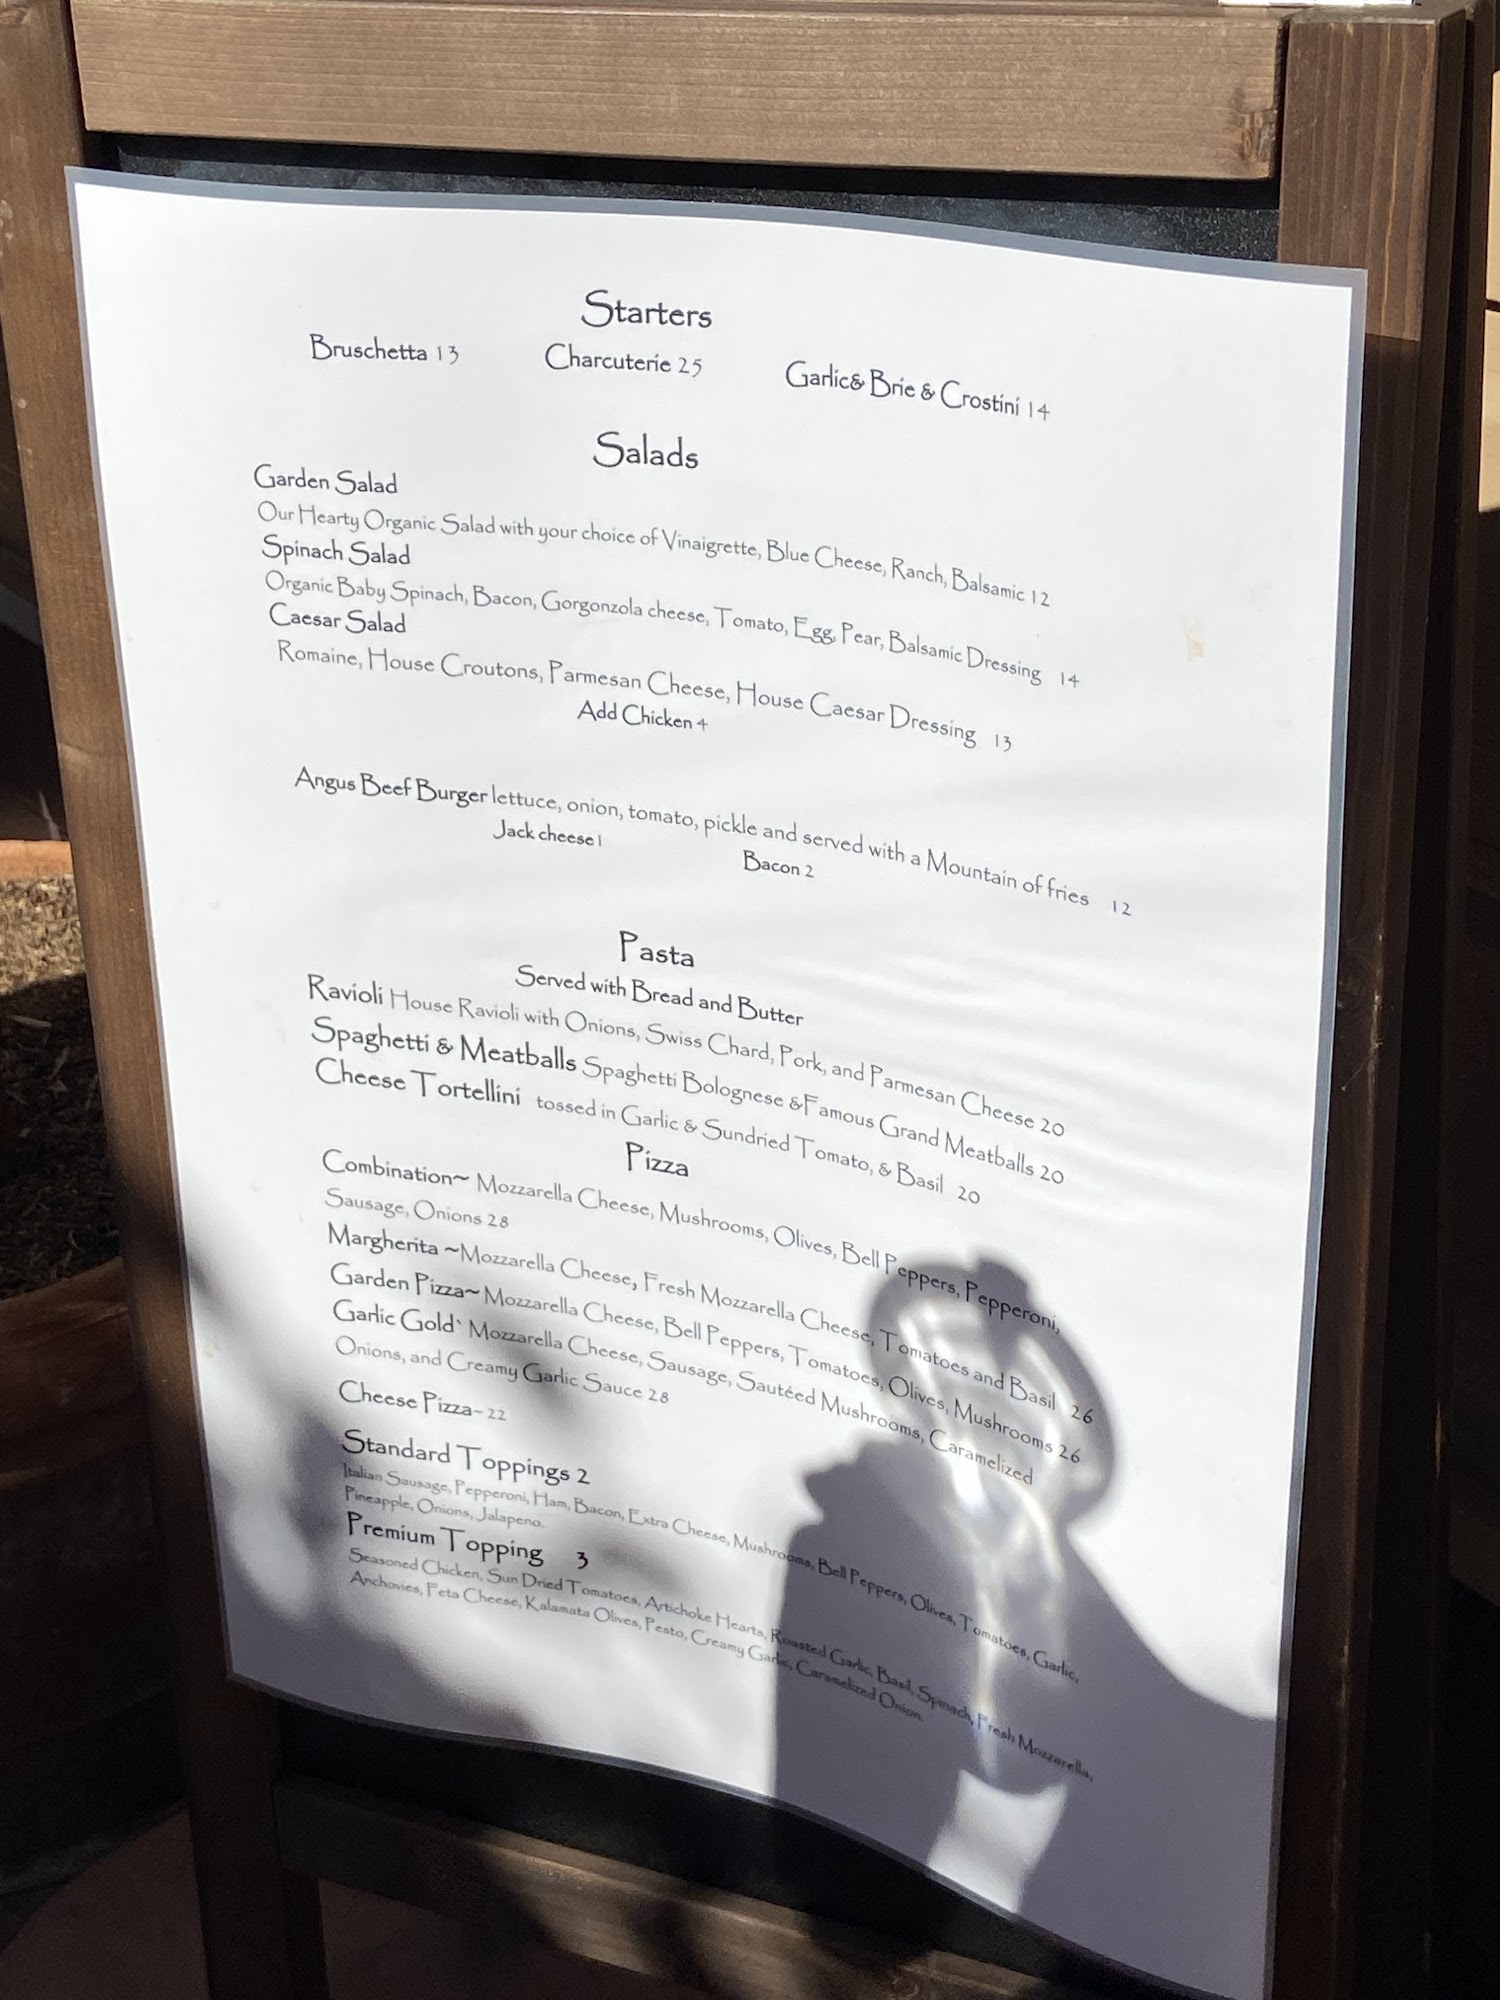 Starters
Bruschetta 13 Charcuterie 25 Garlic& Brie & Crostini 14
Salads
Garden Salad
Our Hearty Organic Salad with your choice of Vinaigrette, Blue Cheese, Ranch, Balsamic 12
Spinach Salad
Organic Baby Spinach, Bacon, Gorgonzola cheese, Tomato, Egg, Pear, Balsamic Dressing 14
Caesar Salad
Romaine, House Croutons, Parmesan Cheese, House Caesar Dressing 13
Add Chicken 4
Angus Beef Burger lettuce, onion, tomato, pickle and served with a Mountain of fries 12
Jack cheese 1 Bacon 2
Pasta
Served with Bread and Butter
Ravioli House Ravioli with Onions, Swiss Chard, Pork, and Parmesan Cheese 20
Spaghetti & Meatballs Spaghetti Bolognese &Famous Grand Meatballs 20
Cheese Tortellini tossed in Garlic & Sundried Tomato, & Basil 20
Pizza
Combination~ Mozzarella Cheese, Mushrooms, Olives, Bell Peppers, Pepperoni,
Sausage, Onions 28
Margherita ~Mozzarella Cheese, Fresh Mozzarella Cheese, Tomatoes and Basil 26
Garden Pizza~ Mozzarella Cheese, Bell Peppers, Tomatoes, Olives, Mushrooms 26
Garlic Gold` Mozzarella Cheese, Sausage, Sautéed Mushrooms, Caramelized
Onions, and Creamy Garlic Sauce 28
Cheese Pizza~ 22
Standard Toppings 2
Italian Sausage, Pepperoni, Ham, Bacon, Extra Cheese, Mushrooms, Bell Peppers, Olives, Tomatoes, Garlic,
Pineapple, Onions, Jalapeno.
Premium Topping 3
Seasoned Chicken, Sun Dried Tomatoes, Artichoke Hearts, Roasted Garlic, Basil, Spinach, Fresh Mozzarella,
Anchovies, Feta Cheese, Kalamata Olives, Pesto, Creamy Garlic, Caramelized Onion.